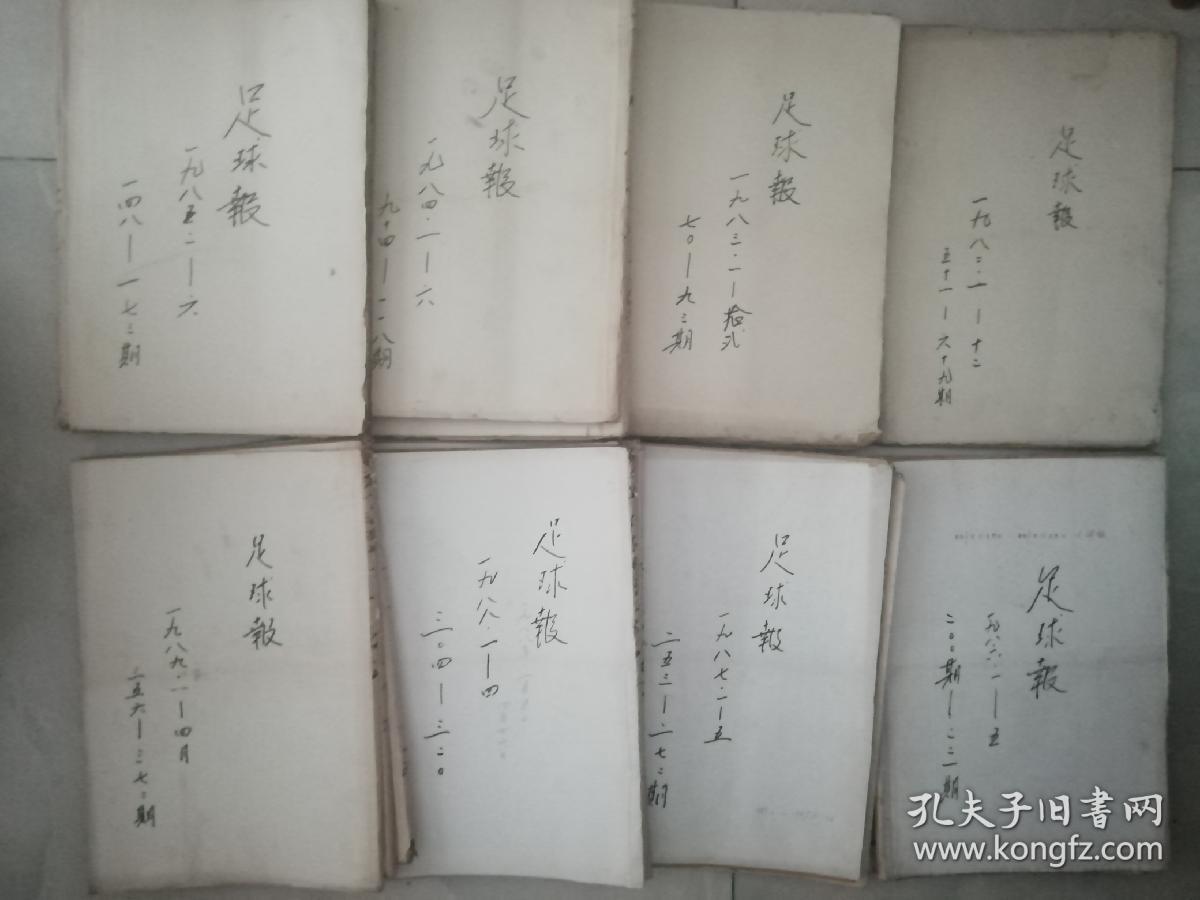 足球報
一九八五.二—六
一四八—一七三期
足球報
一九八四.一—六
九十四—一一八期
足球報
一九八三.一—拾弍
七〇—九三期
足球報
一九八二.一—十二
五十一—六十九期
足球報
一九八九.一—四月
足球報
一九八八.一—四
三〇四—三二〇
足球報
一九八七.一—五
二五三—二七二期
足球報
一九八六.一—五
二〇〇期—二二一期
孔夫子旧書网
www.kongfz.com